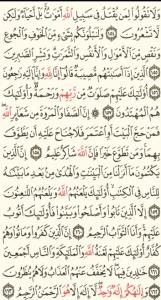 وَلَا تَقُولُوا۟ لِمَن يُقْتَلُ فِى سَبِيلِ ٱللَّهِ أَمْوَٰتٌۢ بَلْ أَحْيَآءٌ وَلَٰكِن
لَّا تَشْعُرُونَ ١٥٤ وَلَنَبْلُوَنَّكُم بِشَىْءٍ مِّنَ ٱلْخَوْفِ وَٱلْجُوعِ
وَنَقْصٍ مِّنَ ٱلْأَمْوَٰلِ وَٱلْأَنفُسِ وَٱلثَّمَرَٰتِ وَبَشِّرِ ٱلصَّٰبِرِينَ
١٥٥ ٱلَّذِينَ إِذَآ أَصَٰبَتْهُم مُّصِيبَةٌ قَالُوٓا۟ إِنَّا لِلَّهِ وَإِنَّآ إِلَيْهِ رَٰجِعُونَ
١٥٦ أُو۟لَٰٓئِكَ عَلَيْهِمْ صَلَوَٰتٌ مِّن رَّبِّهِمْ وَرَحْمَةٌ وَأُو۟لَٰٓئِكَ
هُمُ ٱلْمُهْتَدُونَ ١٥٧ إِنَّ ٱلصَّفَا وَٱلْمَرْوَةَ مِن شَعَآئِرِ ٱللَّهِ
فَمَنْ حَجَّ ٱلْبَيْتَ أَوِ ٱعْتَمَرَ فَلَا جُنَاحَ عَلَيْهِ أَن يَطَّوَّفَ
بِهِمَا وَمَن تَطَوَّعَ خَيْرًا فَإِنَّ ٱللَّهَ شَاكِرٌ عَلِيمٌ ١٥٨ إِنَّ ٱلَّذِينَ
يَكْتُمُونَ مَآ أَنزَلْنَا مِنَ ٱلْبَيِّنَٰتِ وَٱلْهُدَىٰ مِنۢ بَعْدِ مَا بَيَّنَّٰهُ
لِلنَّاسِ فِى ٱلْكِتَٰبِ أُو۟لَٰٓئِكَ يَلْعَنُهُمُ ٱللَّهُ وَيَلْعَنُهُمُ ٱللَّٰعِنُونَ
١٥٩ إِلَّا ٱلَّذِينَ تَابُوا۟ وَأَصْلَحُوا۟ وَبَيَّنُوا۟ فَأُو۟لَٰٓئِكَ أَتُوبُ
عَلَيْهِمْ وَأَنَا ٱلتَّوَّابُ ٱلرَّحِيمُ ١٦٠ إِنَّ ٱلَّذِينَ كَفَرُوا۟ وَمَاتُوا۟ وَهُمْ
كُفَّارٌ أُو۟لَٰٓئِكَ عَلَيْهِمْ لَعْنَةُ ٱللَّهِ وَٱلْمَلَٰٓئِكَةِ وَٱلنَّاسِ أَجْمَعِينَ
١٦١ خَٰلِدِينَ فِيهَا لَا يُخَفَّفُ عَنْهُمُ ٱلْعَذَابُ وَلَا هُمْ يُنظَرُونَ
١٦٢ وَإِلَٰهُكُمْ إِلَٰهٌ وَٰحِدٌ لَّآ إِلَٰهَ إِلَّا هُوَ ٱلرَّحْمَٰنُ ٱلرَّحِيمُ ١٦٣